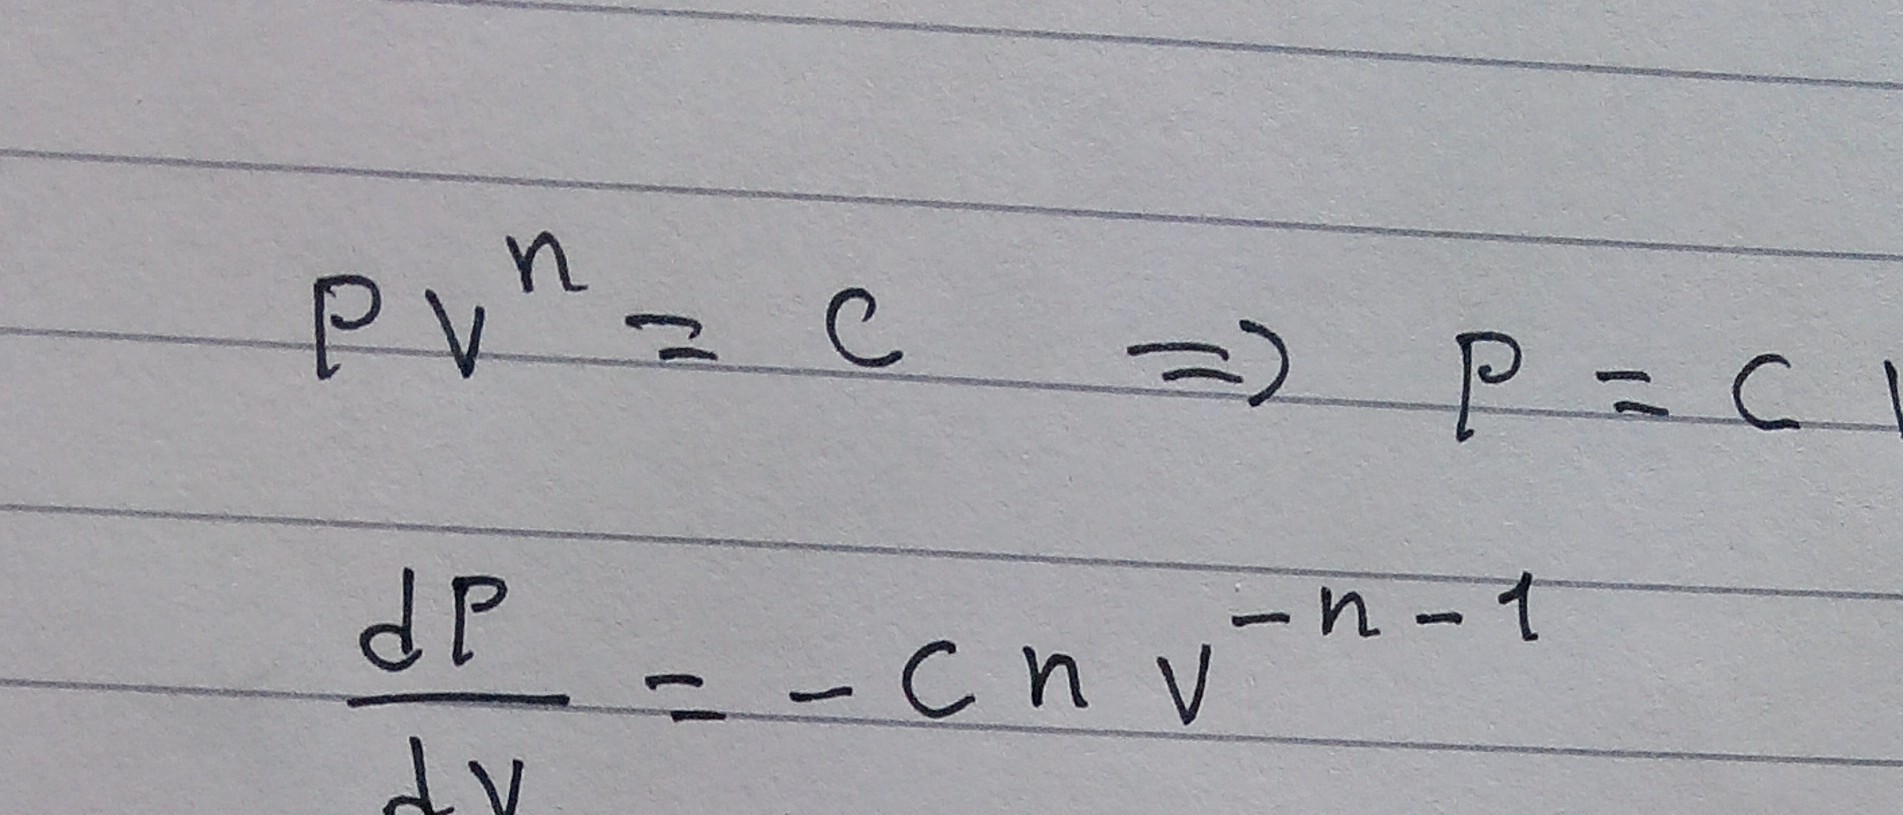 PVⁿ = C ⇒ P = C
dP/dV = -CnV⁻ⁿ⁻¹